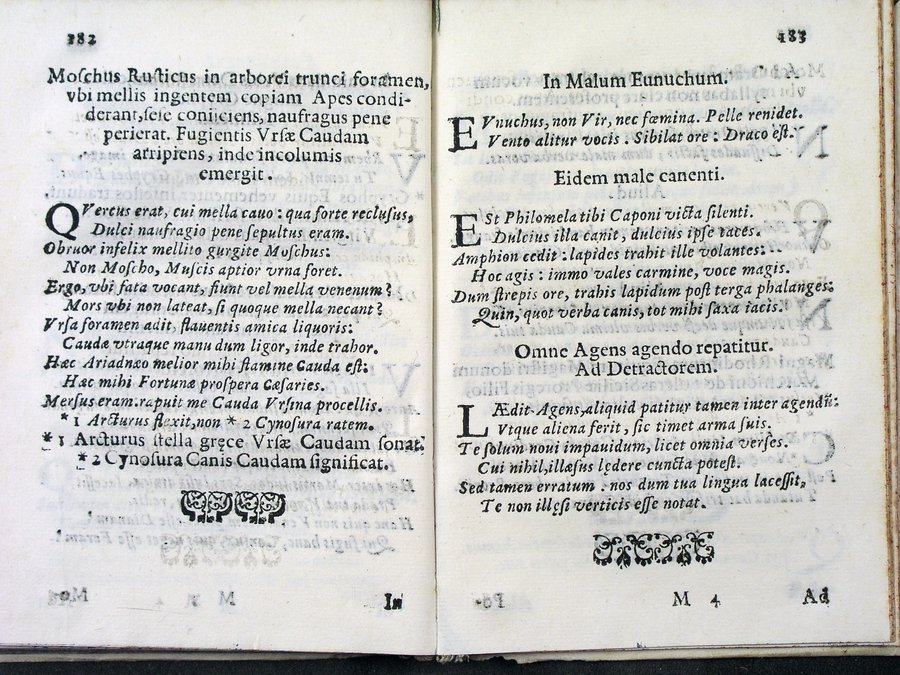 182
Moſchus Ruſticus in arborei trunci foramen,
vbi mellis ingentem copiam Apes condi-
derant, ſeſe conijciens, naufragus pene
perierat. Fugientis Vrſæ Caudam
arripiens, inde incolumis
emergit.
QVercus erat, cui mella cauo: qua forte recluſus,
Dulci naufragio pene ſepultus eram.
Obruor infelix mellito gurgite Moſchus:
Non Moſcho, Muſcis aptior vrna foret.
Ergo, vbi fata vocant, fiunt vel mella venenum?
Mors vbi non lateat, ſi quoque mella necant?
Vrſa foramen adit, flauentis amica liquoris:
Caudæ vtraque manu dum ligor, inde trahor.
Hæc Ariadnæo melior mihi ſtamine Cauda eſt:
Hæc mihi Fortunæ proſpera Cæſaries.
Merſus eram. rapuit me Cauda Vrſina procellis.
* 1 Arcturus flexit, non * 2 Cynoſura ratem.
* 1 Arcturus ſtella gręce Vrſæ Caudam ſonat.
* 2 Cynoſura Canis Caudam ſignificat.
In
183
In Malum Eunuchum.
EVnuchus, non Vir, nec fœmina. Pelle renidet.
Vento alitur vocis. Sibilat ore: Draco eſt.
Eidem male canenti.
ESt Philomela tibi Caponi victa ſilenti.
Dulcius illa canit, dulcius ipſe taces.
Amphion cedit: lapides trahit ille volantes:
Hoc agis: immo vales carmine, voce magis.
Dum ſtrepis ore, trahis lapidum poſt terga phalanges:
Quin, quot verba canis, tot mihi ſaxa iacis.
Omne Agens agendo repatitur.
Ad Detractorem.
LÆdit Agens, aliquid patitur tamen inter agendũ:
Vtque aliena ferit, ſic timet arma ſuis.
Te ſolum noui impauidum, licet omnia verſes.
Cui nihil, illæſus lędere cuncta poteſt.
Sed tamen erratum: nos dum tua lingua laceſſit,
Te non illęſi verticis eſſe notat.
M 4
Ad